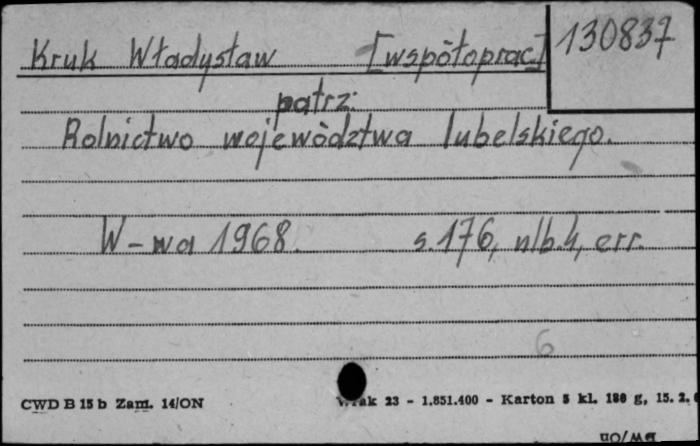 Kruk Władysław [współoprac] 130837
patrz:
Rolnictwo województwa lubelskiego.
W-wa 1968. s.176, nlb.4, err.
6
CWD B 15 b Zam. 14/ON 23 - 1.851.400 - Karton 5 kl. 180 g, 15. 2.